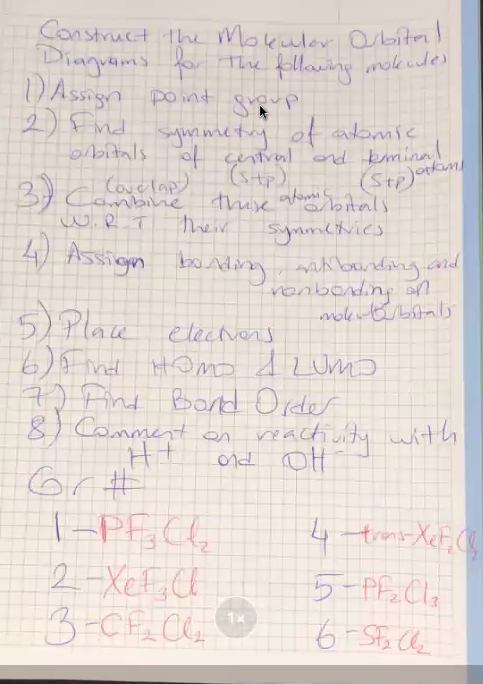 Construct the Molekular Orbital
Diagrams for the following molecules
1) Assign point group
2) Find symmetry of atomic
orbitals of central and terminal
(s+p) (s+p) atoms
3) Combine (overlap) these atomic orbitals
W.R.T their symmetries
4) Assign bonding, antibonding and
nonbonding on
molecular orbitals
5) Place electrons
6) Find HOMO & LUMO
7) Find Bond Order
8) Comment on reactivity with
H+ and OH-
Gr #
1-PF3Cl2
2-XeF3Cl
3-CF2Cl2
4-trans-XeF2Cl2
5-PF2Cl3
6-SF2Cl2
1x